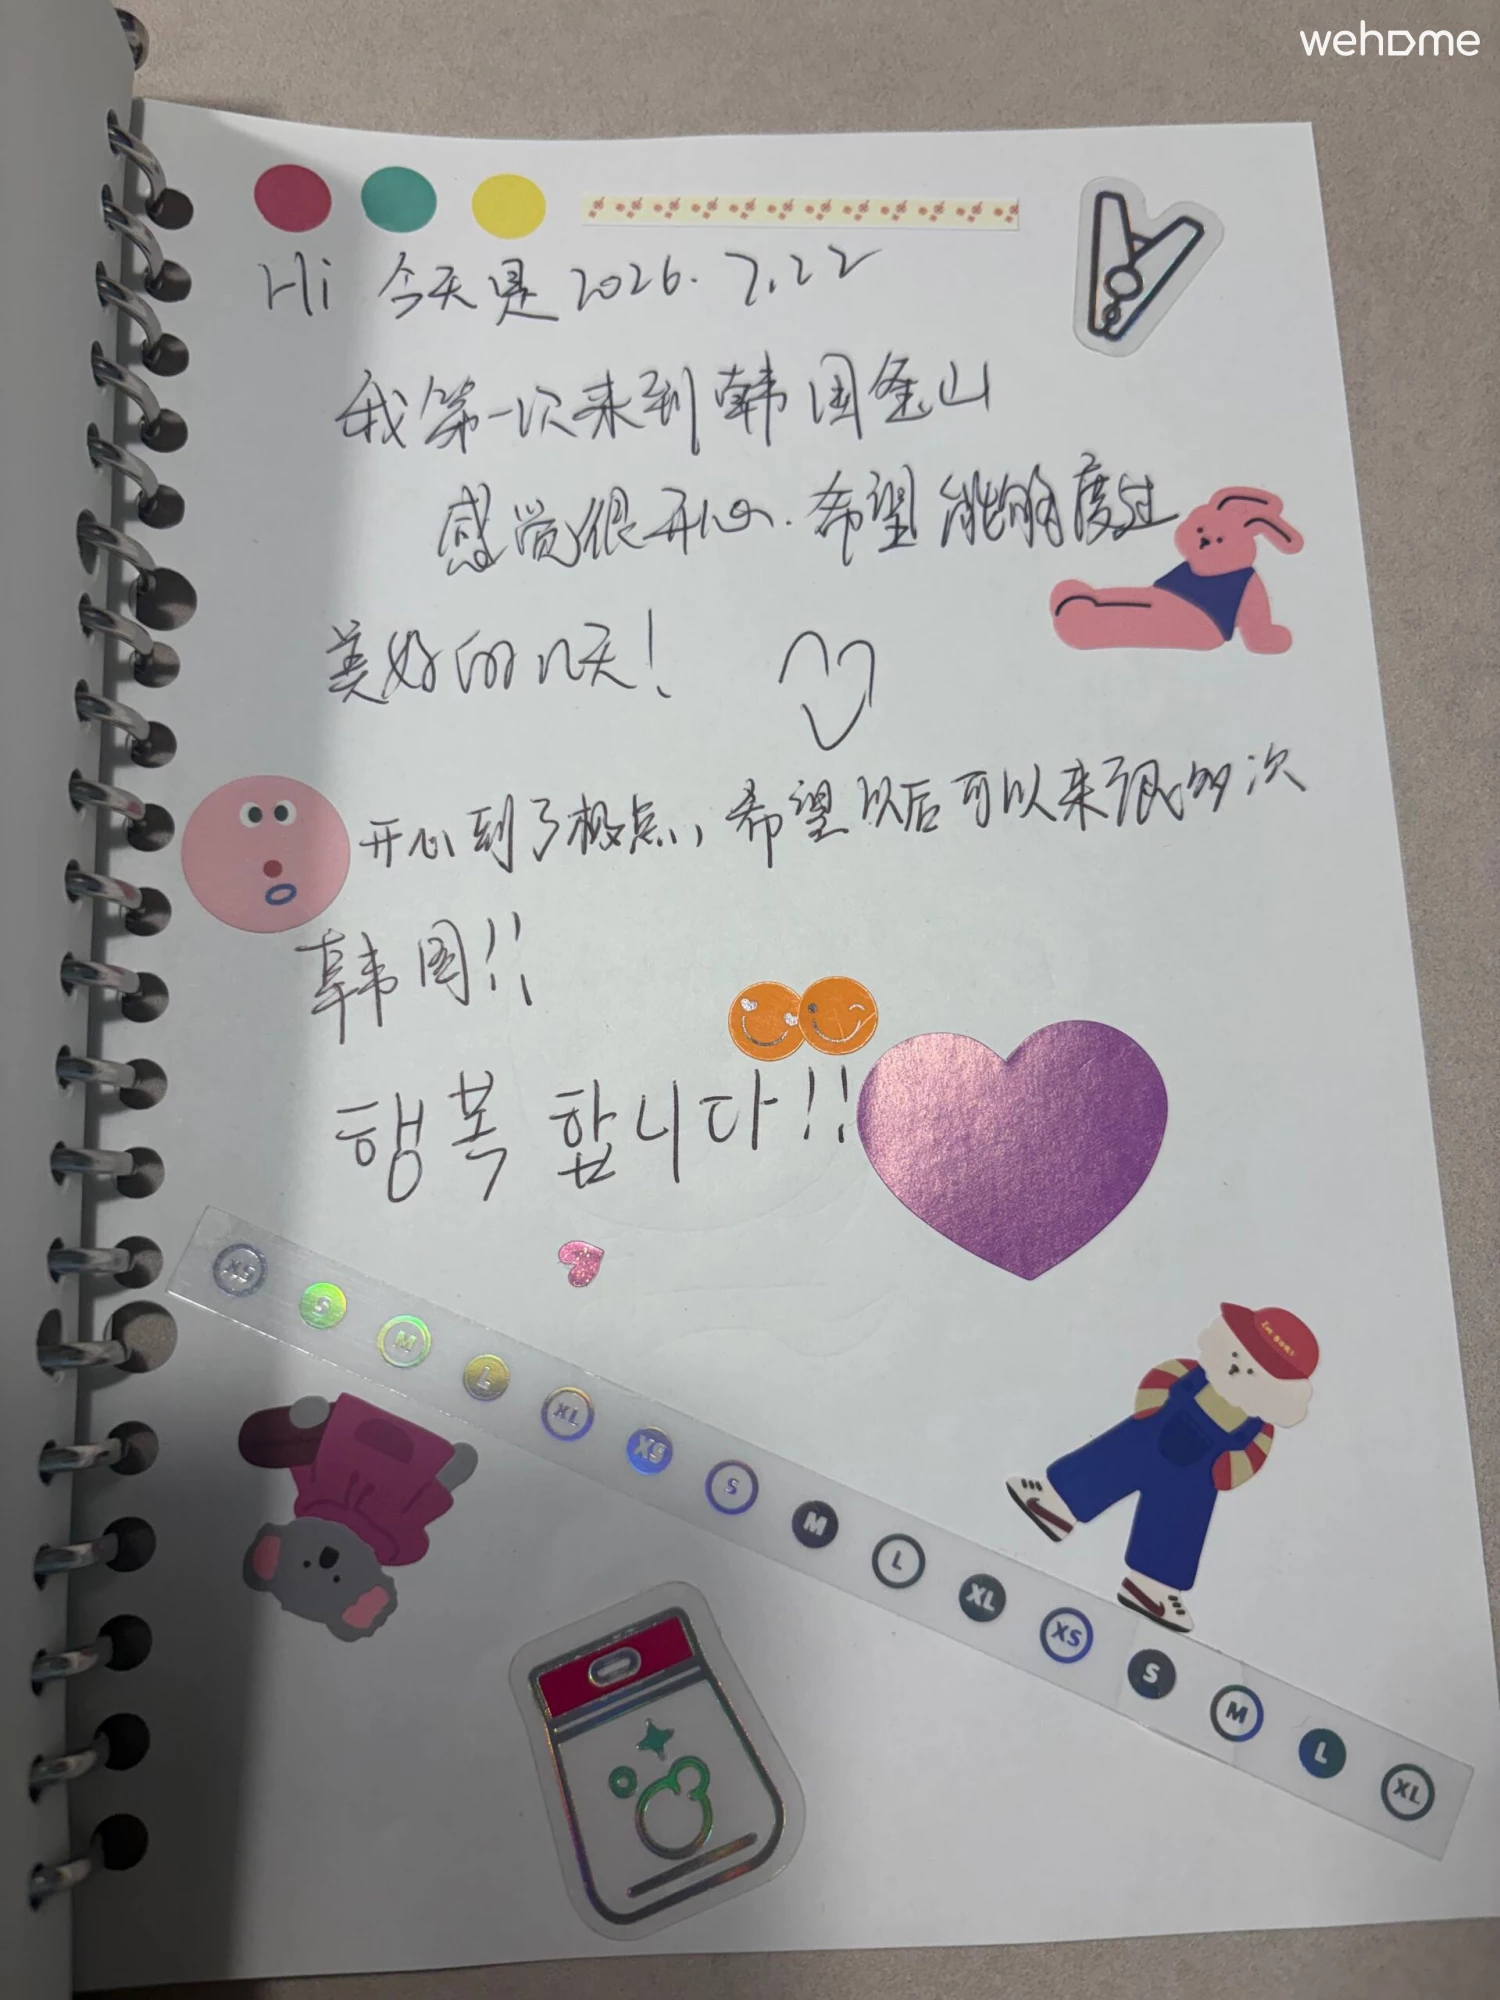 wehome
Hi 今天是2026.7.22
我第一次来到韩国釜山
感觉很开心.希望能够度过
美好的几天!
开心到了极点,希望以后可以来很多次
韩国!!
행폭 합니다!!
XS S M L XL XS S M L XL XS S M L XL